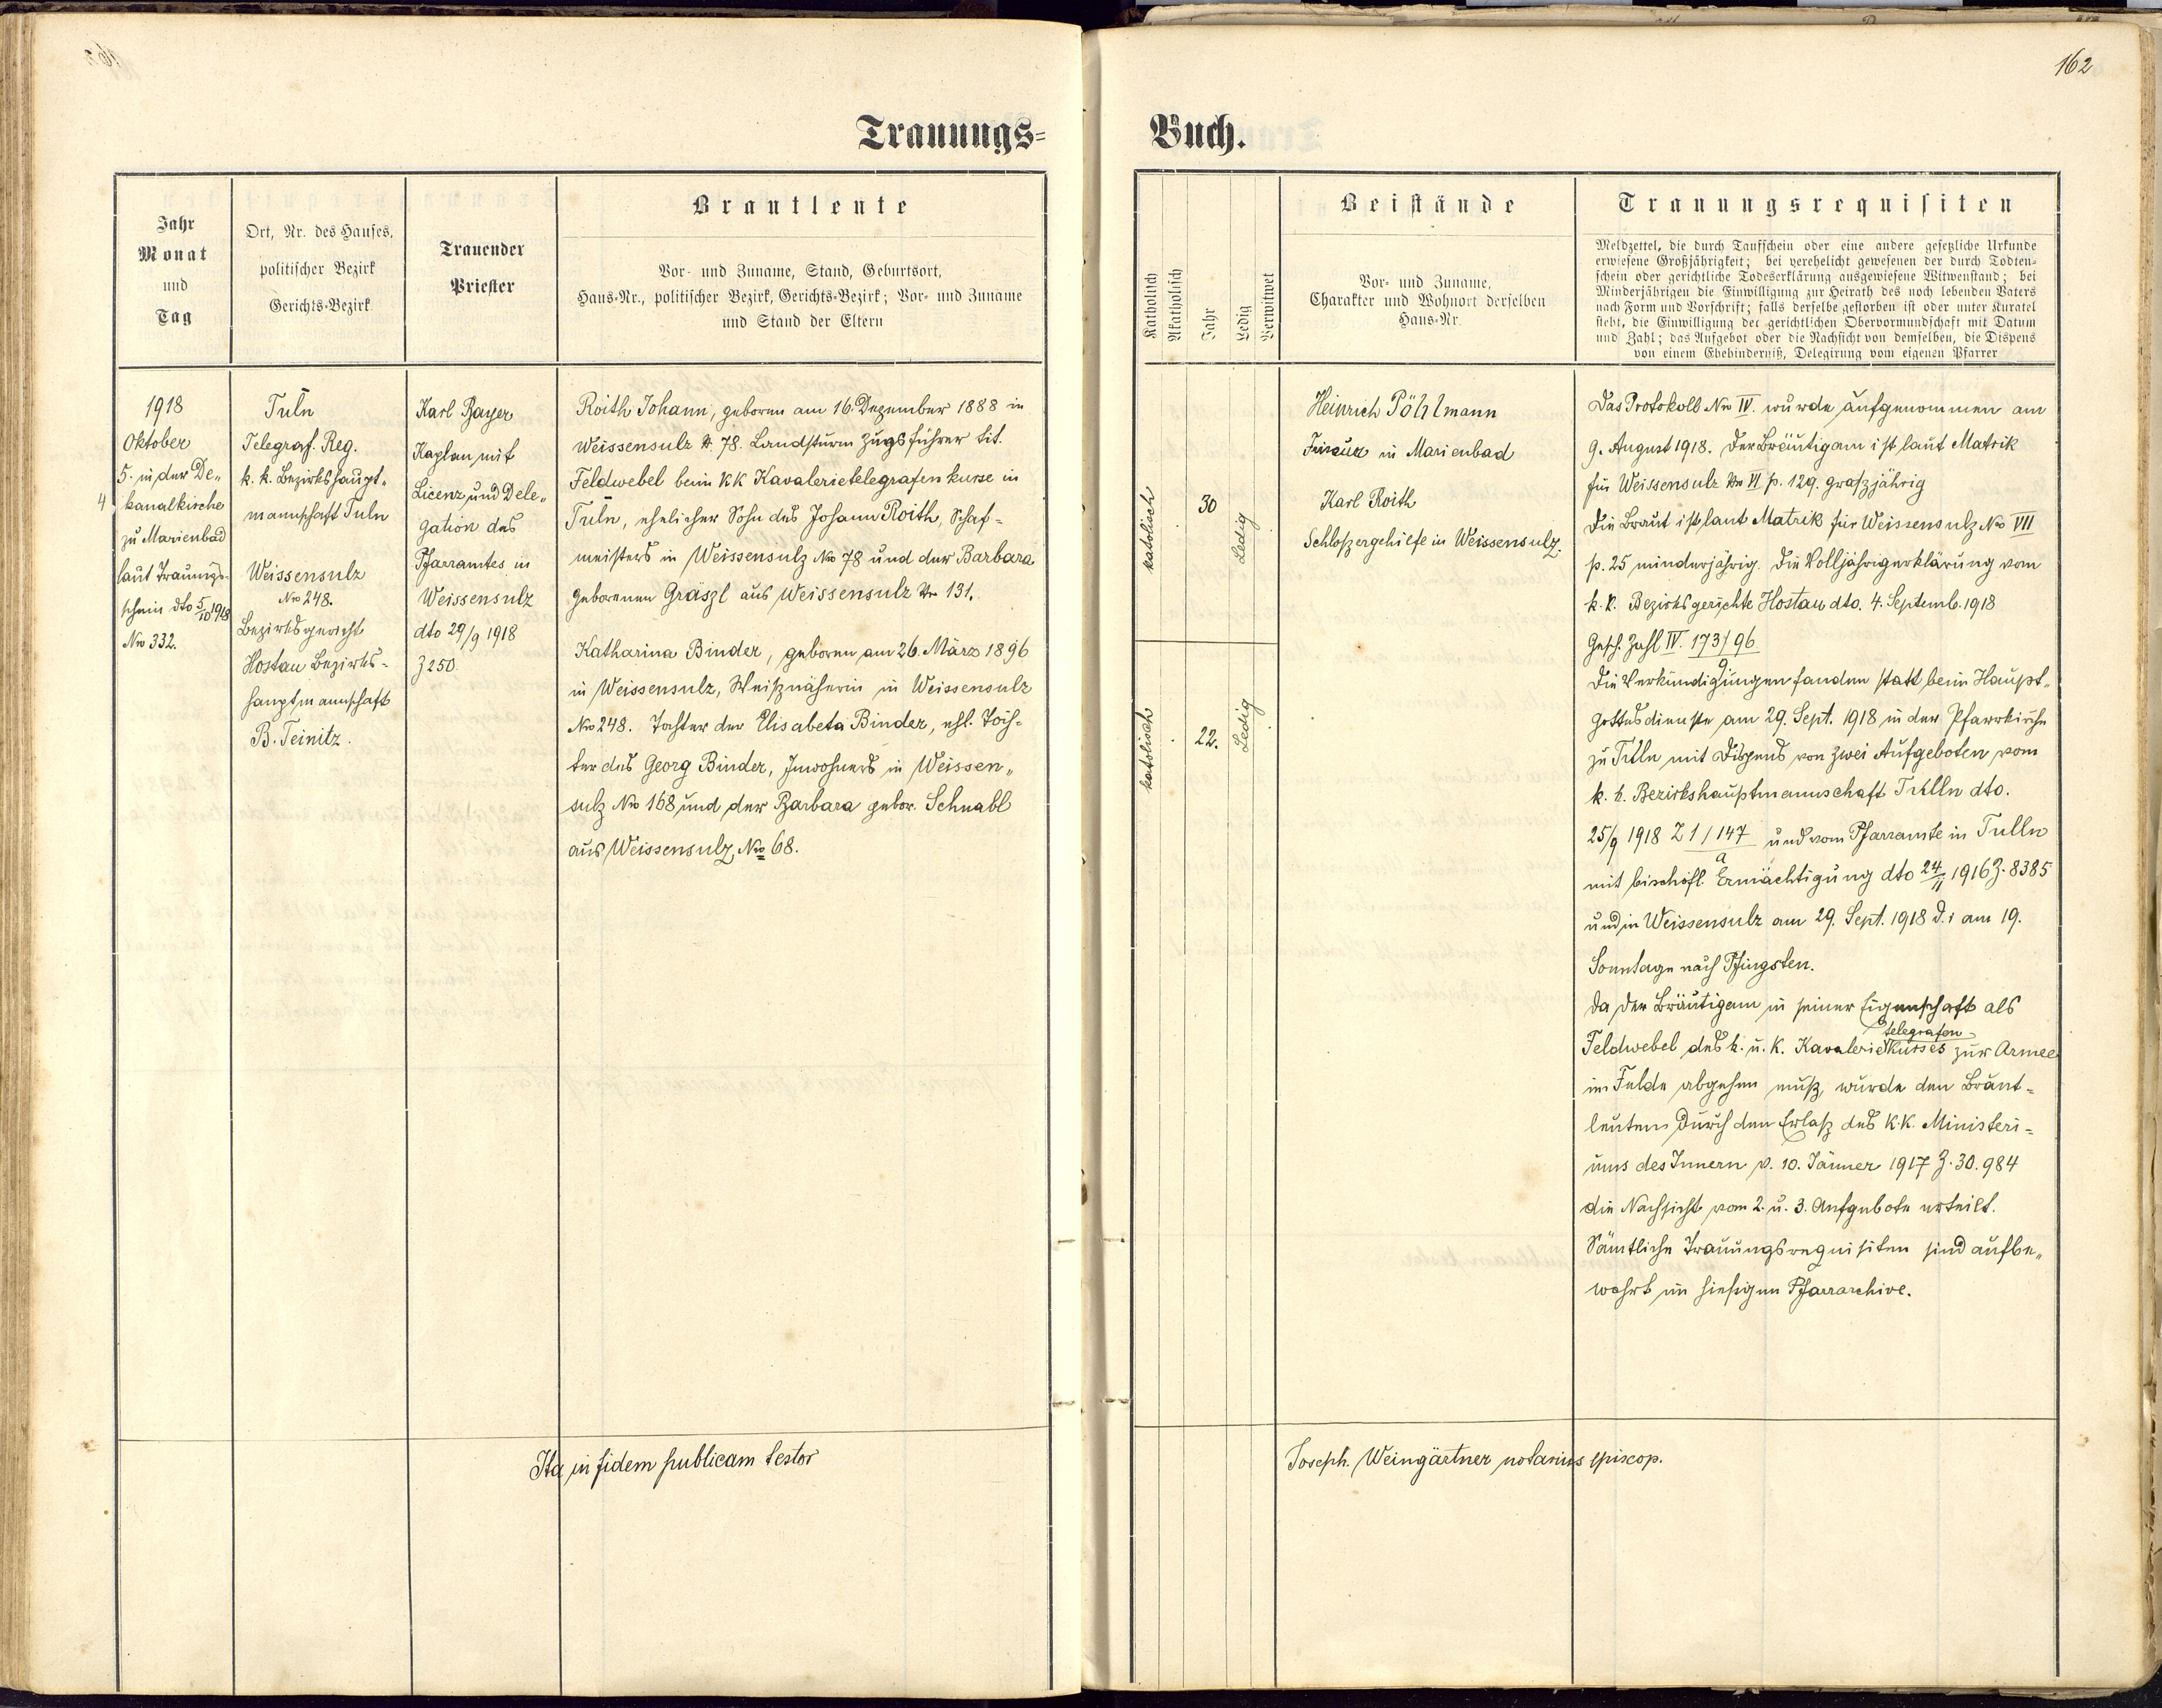 162
Trauungs=
Buch.
Jahr
Monat
und
Tag
Ort, Nr. des Hauses,
politischer Bezirk
Gerichts-Bezirk
Trauender
Priester
Brautleute
Vor- und Zuname, Stand, Geburtsort,
Haus-Nr., politischer Bezirk, Gerichts-Bezirk; Vor- und Zuname
und Stand der Eltern
1918
Oktober
5. in der De„
kanalkirche
zu Marienbad
laut Trauungs-
schein dto 5/10 1918
No 332.
4
Tuln
Telegraf. Reg.
k. k. Bezirkshaupt„
mannschaft Tuln
Weissensulz
No 248.
Bezirksgericht
Hostau Bezirks-
hauptmannschaft
B. Teinitz.
Karl Bayer
Kaplan mit
Licenz und Dele„
gation des
Pfarramtes in
Weissensulz
dto 29/9 1918
Z 250
Roith Johann, geboren am 16. Dezember 1888 in
Weissensulz N. 78. Landsturm Zugsführer tit.
Feldwebel beim KK Kavalerietelegrafenkurse in
Tuln, ehelicher Sohn des Johann Roith, Schaf-
meisters in Weissensulz No 78 und der Barbara
geborenen Gräszl aus Weissensulz No 131.
Katharina Binder, geboren am 26. März 1896
in Weissensulz, Weißnäherin in Weissensulz
No 248. Tochter der Elisabeta Binder, ehl. Toch-
ter des Georg Binder, Inwohners in Weissen„
sulz No 168 und der Barbara gebor. Schnabl
aus Weissensulz No 68.
Ita in fidem publicam testor
Katholisch
Akatholisch
Jahr
Ledig
Verwitwet
Beistände
Vor- und Zuname,
Charakter und Wohnort derselben
Haus-Nr.
Trauungsrequisiten
Meldzettel, die durch Taufschein oder eine andere gesetzliche Urkunde
erwiesene Großjährigkeit; bei verehelicht gewesenen der durch Todten-
schein oder gerichtliche Todeserklärung ausgewiesene Witwenstand; bei
Minderjährigen die Einwilligung zur Heirath des noch lebenden Vaters
nach Form und Vorschrift; falls derselbe gestorben ist oder unter Kuratel
steht, die Einwilligung der gerichtlichen Obervormundschaft mit Datum
und Zahl; das Aufgebot oder die Nachsicht von demselben, die Dispens
von einem Ehehinderniß, Delegirung vom eigenen Pfarrer
katolisch
30
Ledig
katolisch
22.
Ledig
Heinrich Pöhlmann
Friseur in Marienbad
Karl Roith
Schloßergehilfe in Weissensulz.
Das Protokoll No IV. wurde aufgenommen am
9. August 1918. Der Bräutigam ist laut Matrik
für Weissensulz No VI p. 129. großjährig
Die Braut ist laut Matrik für Weissensulz No VII
p. 25 minderjährig. Die Volljährigerklärung vom
k. k. Bezirksgerichte Hostau dto. 4. Septemb. 1918
Gesch. Zahl IV. 173/96
9.
Die Verkündigungen fanden statt beim Haupt„
gottesdienste am 29. Sept. 1918 in der Pfarrkirche
zu Tulln mit Dispens von zwei Aufgeboten vom
k. k. Bezirkshauptmannschaft Tulln dto.
25/9 1918 Z 1/147 und vom Pfarramte in Tulln
a
mit bischöfl. Ermächtigung dto 24/11 1916 Z. 8385
und in Weissensulz am 29. Sept. 1918 d. i am 19.
Sonntage nach Pfingsten.
Da der Bräutigam in seiner Eigenschaft als
telegrafen
Feldwebel des k. u. K. Kavaleriekurses zur Armee
im Felde abgehen muß, wurde den Braut-
leuten durch den Erlaß des K.K. Ministeri-
ums des Innern v. 10. Jänner 1917 Z. 30.984
die Nachsicht vom 2. u. 3. Aufgebote erteilt.
Sämtliche Trauungsrequisiten sind aufbe„
wahrt im hiesigen Pfarrarchive.
Joseph. Weingärtner notarius episcop.